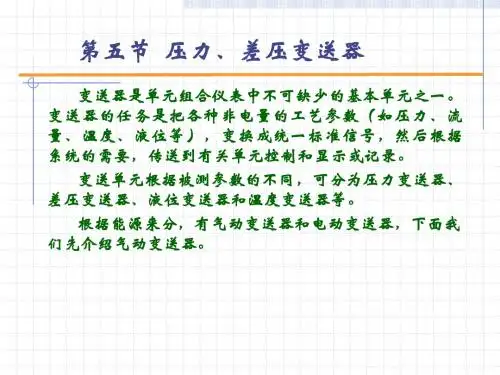 第五节 压力、差压变送器
变送器是单元组合仪表中不可缺少的基本单元之一。
变送器的任务是把各种非电量的工艺参数（如压力、流
量、温度、液位等），变换成统一标准信号，然后根据
系统的需要，传送到有关单元控制和显示或记录。
变送单元根据被测参数的不同，可分为压力变送器、
差压变送器、液位变送器和温度变送器等。
根据能源来分，有气动变送器和电动变送器，下面我
们先介绍气动变送器。